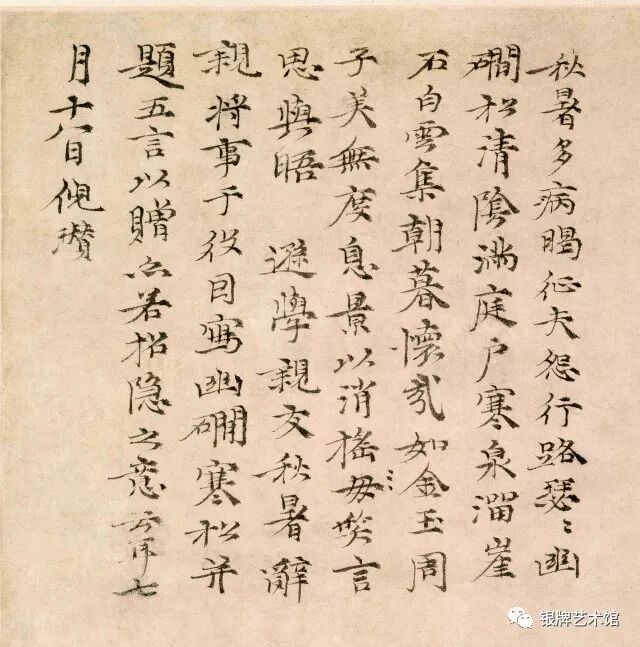 秋暑多病暍征夫怨行路瑟〻幽
磵松清陰滿庭户寒泉溜崖
石白雲集朝暮懷哉如金玉周
子美無度息景以消搖毋笑言
思與晤 遜學親友秋暑辭
親將事于役因寫幽磵寒松并
題五言以贈亦若招隱之意云耳七
月十八日倪瓚
银牌艺术馆